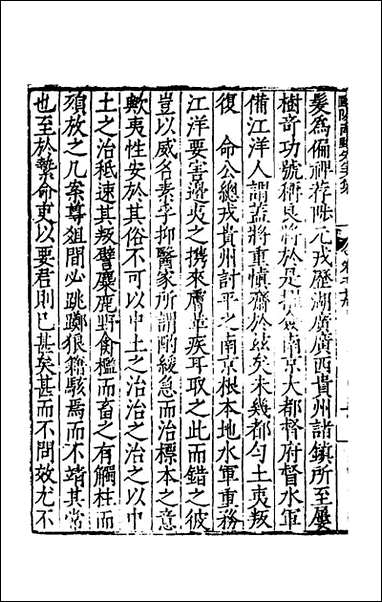 髮為偏裨荐陟元戎歷湖廣廣西貴州諸鎮所至屢
樹竒功號稱良將於是 南京大都督府督水軍
備江洋人謂蓋將重慎齋於兹矣未幾都勻土夷叛
復 命公總戎貴州討平之南京根本地水軍重務
江洋要害邊夷之撲來膚革疾耳取之此而錯之彼
豈以威名素孚抑醫家所謂酌緩急而治標本之意
歟夷性安於其俗不可以中土之治治之治之以中
土之治秪速其叛譬麋鹿野禽檻而畜之有觸柱而
須放之几案尊爼間必跳躑狼籍駭焉而不靖其常
也至於縶命吏以要君則已甚矣甚而不問效尤不